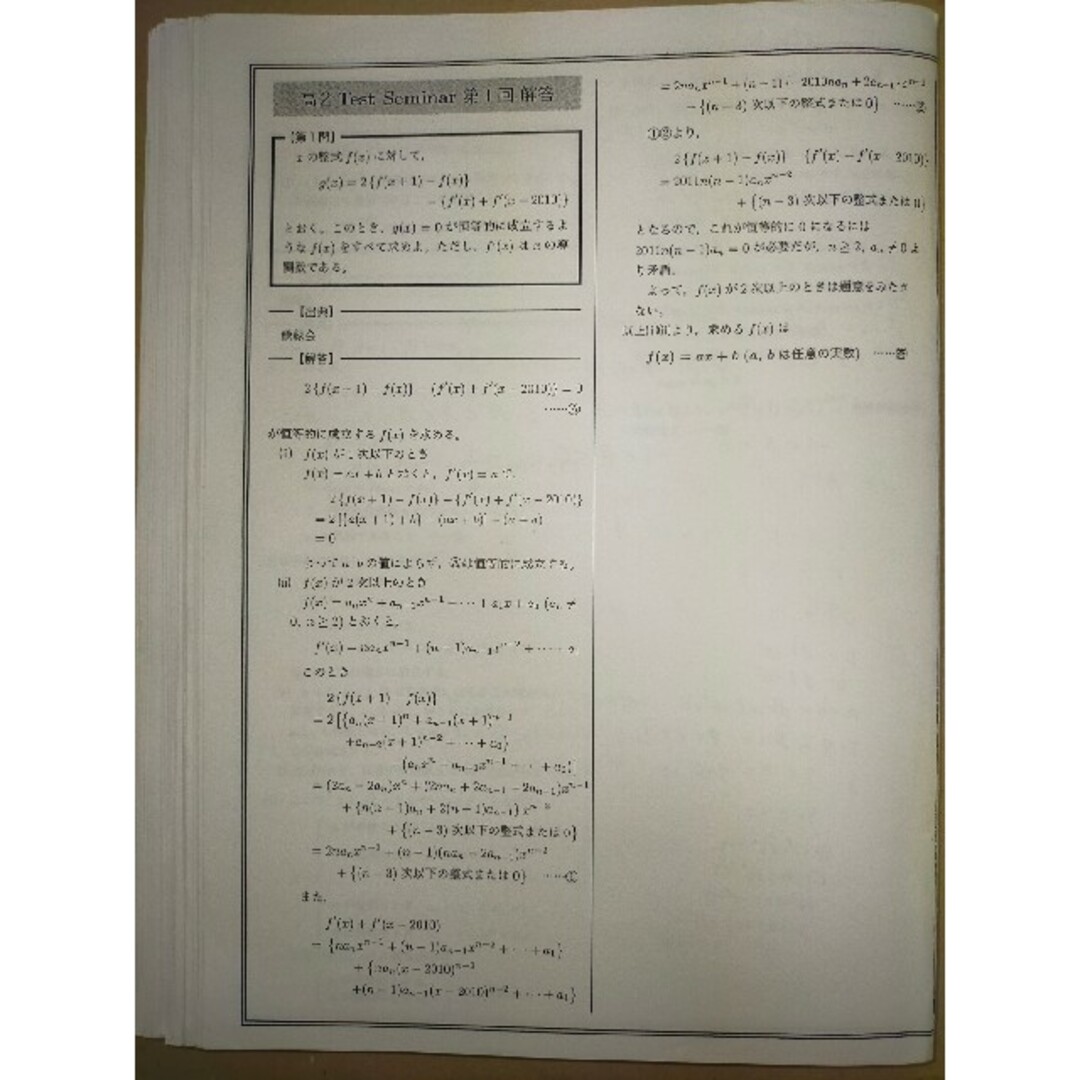 高2 Test Seminar 第1回 解答
【第1問】
xの整式 f(x) に対して,
g(x) = 2{f(x+1) − f(x)}
− {f′(x) + f′(x − 2010)}
とおく。このとき, g(x) = 0 が恒等的に成立するよ
うな f(x) をすべて求めよ。ただし, f′(x) は の導
関数である。
【出典】
鉄緑会
【解答】
2{f(x+1) − f(x)} − {f′(x) + f′(x − 2010)} = 0
が恒等的に成立する f(x) を求める。
(i) f(x) が1次以下のとき
f(x) = ax + b とおくと, f′(x) = a で,
2{f(x+1) − f(x)} − {f′(x) + f′(x − 2010)}
= 2[{a(x+1)+b} − (ax+b)] − (a+a)
= 0
よって a, b の値によらず, は恒等的に成立する。
(ii) f(x) が2次以上のとき
f(x) = aₙxⁿ + aₙ₋₁xⁿ⁻¹ + ⋯ + a₁x + a₀ (aₙ ≠
0, n ≧ 2) とおくと,
f′(x) = naₙxⁿ⁻¹ + (n−1)aₙ₋₁xⁿ⁻² + ⋯⋯
このとき
2{f(x+1) − f(x)}
= 2[{aₙ(x+1)ⁿ + aₙ₋₁(x+1)ⁿ⁻¹
+aₙ₋₂(x+1)ⁿ⁻² + ⋯ + a₀}
− (aₙxⁿ + aₙ₋₁xⁿ⁻¹ + ⋯ + a₀)]
= (2aₙ − 2aₙ)xⁿ + (2naₙ + 2aₙ₋₁ − 2aₙ₋₁)xⁿ⁻¹
+ {n(n−1)aₙ + 2(n−1)aₙ₋₁}xⁿ⁻²
+ {(n−3) 次以下の整式または 0}
= 2naₙxⁿ⁻¹ + (n−1)(naₙ + 2aₙ₋₁)xⁿ⁻²
+ {(n−3) 次以下の整式または 0} ⋯⋯①
また,
f′(x) + f′(x − 2010)
= {naₙxⁿ⁻¹ + (n−1)aₙ₋₁xⁿ⁻² + ⋯ + a₁}
+ {naₙ(x − 2010)ⁿ⁻¹
+(n−1)aₙ₋₁(x − 2010)ⁿ⁻² + ⋯ + a₁}
= 2naₙxⁿ⁻¹ + (n−1)(−2010naₙ + 2aₙ₋₁)xⁿ⁻²
+ {(n−3) 次以下の整式または 0} ⋯⋯②
①②より,
2{f(x+1) − f(x)} − {f′(x) + f′(x − 2010)}
= 2011n(n−1)aₙxⁿ⁻²
+ {(n−3) 次以下の整式または 0}
となるので, これが恒等的に 0 になるには
2011n(n−1)aₙ = 0 が必要だが, n ≧ 2, aₙ ≠ 0 よ
り矛盾。
よって, f(x) が2次以上のときは題意をみたさ
ない。
以上(i)(ii)より, 求める f(x) は
f(x) = ax + b (a, b は任意の実数) ⋯⋯答